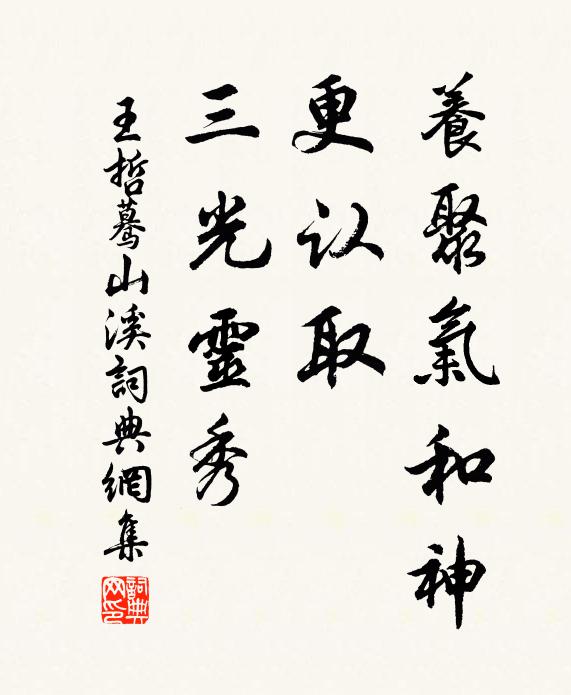 養聚氣和神
更认取
三光靈秀
王哲驀山溪詞典網集
詞典網印